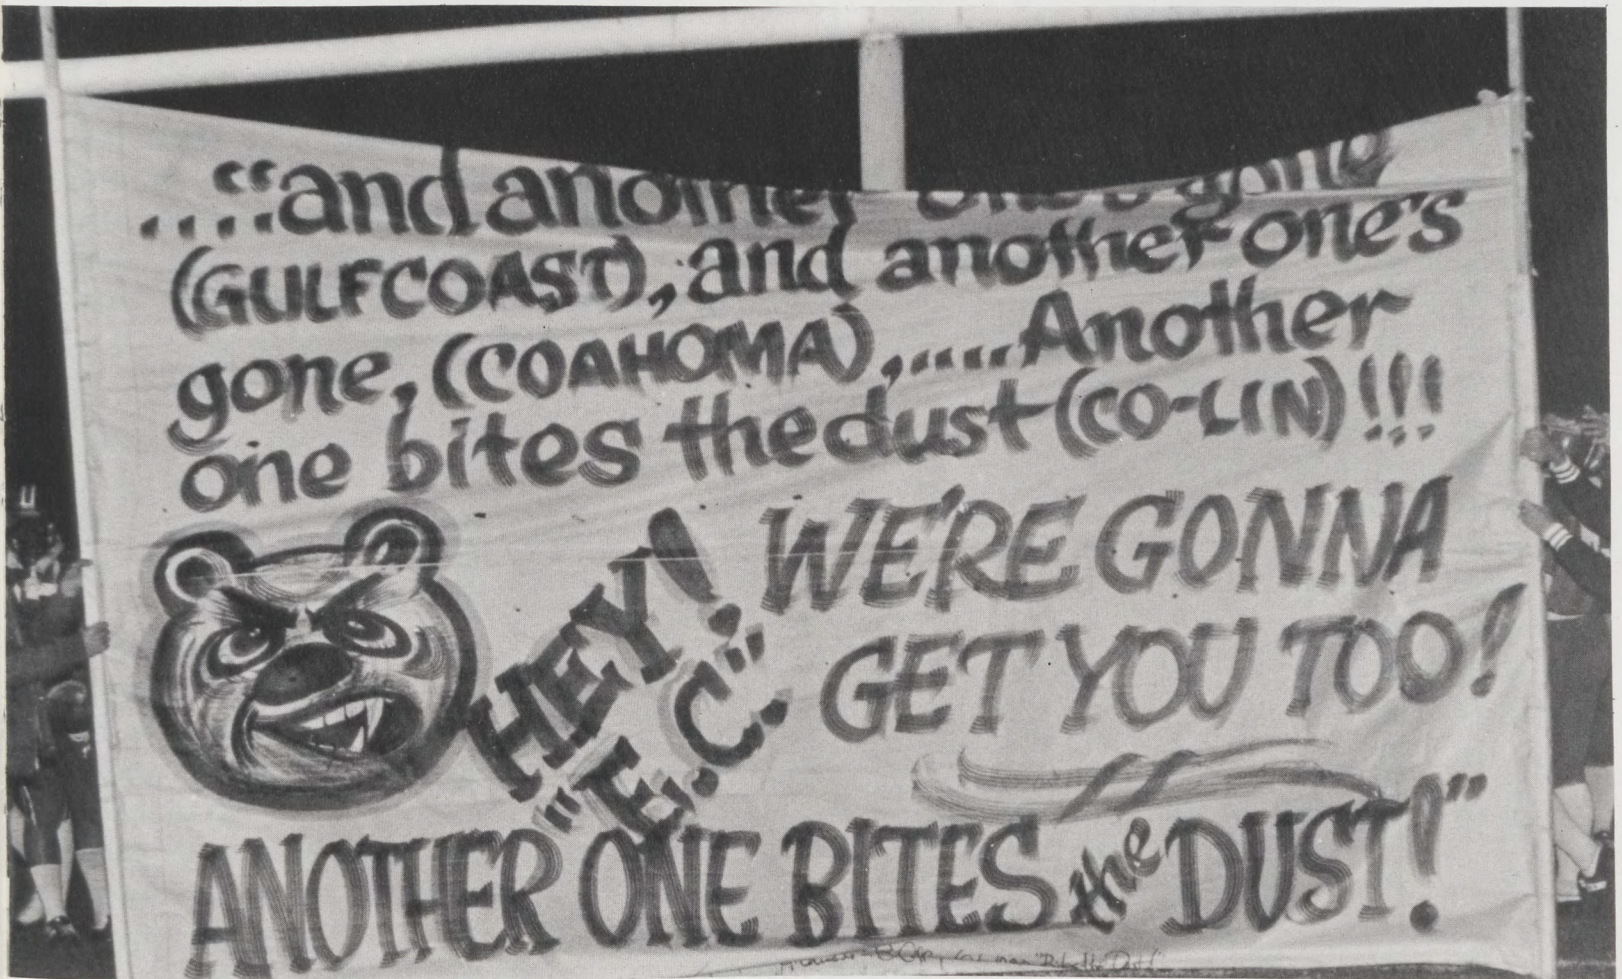 ...."and another one's gone
(GULFCOAST), and another one's
gone, (COAHOMA),.....Another
one bites the dust (CO-LIN)!!!
HEY! "E.C." WE'RE GONNA
GET YOU TOO!
ANOTHER ONE BITES the DUST!"